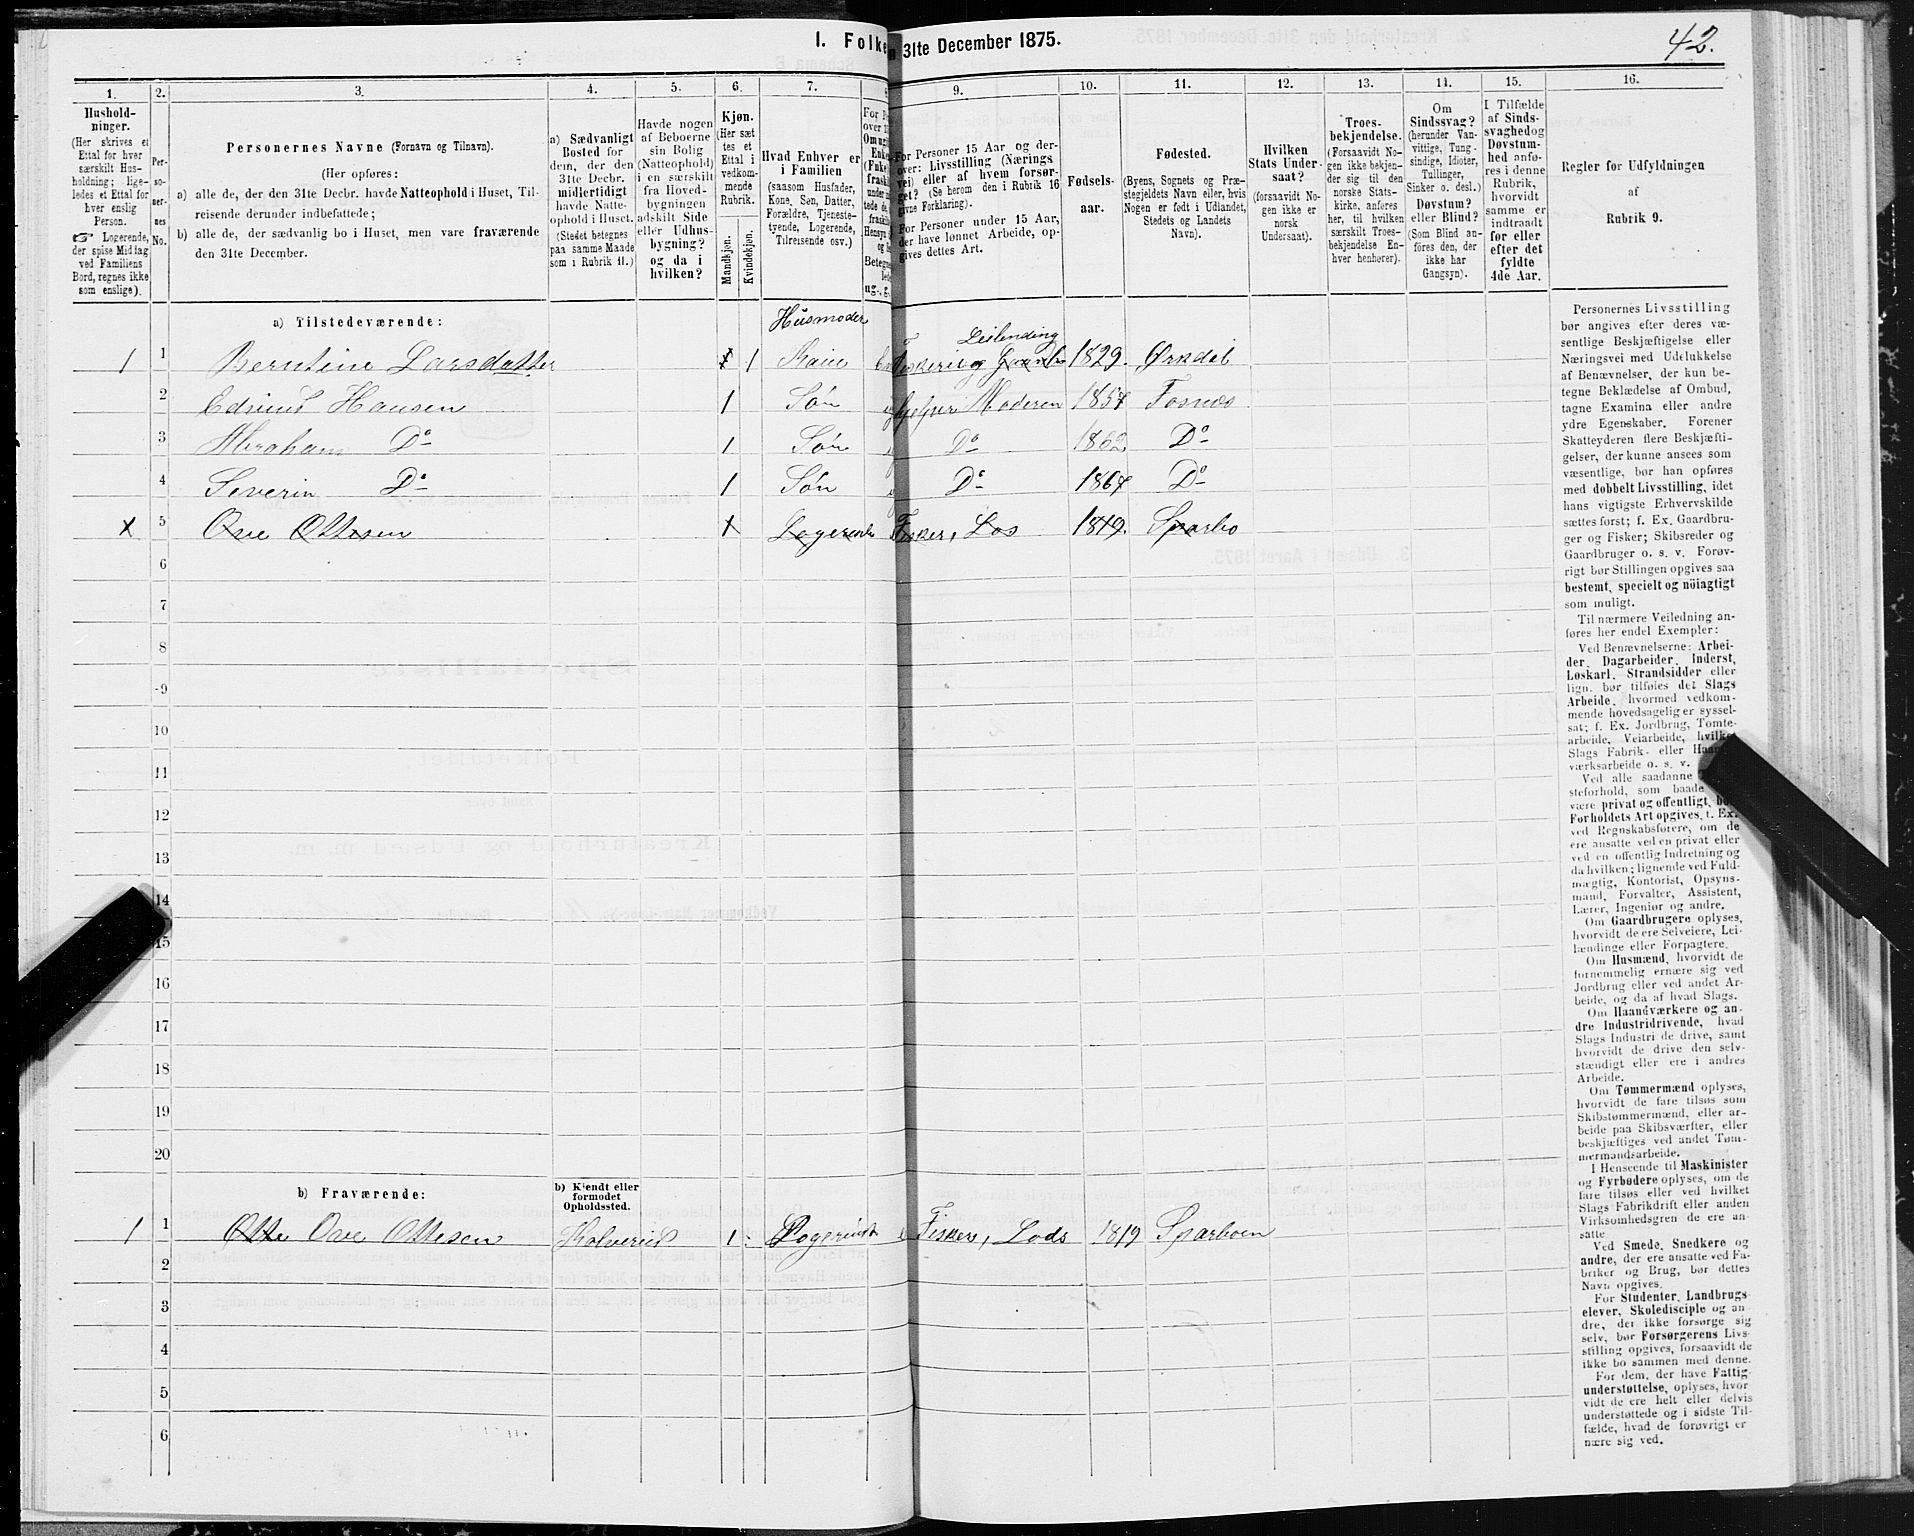 42.
I. Folke
n 31te December 1875.
1.
2.
3.
4.
5.
6.
7.
9.
10.
11.
12.
13.
14.
15.
16.
Hushold-
ninger.
(Her skrives et
Ettal for hver
særskilt Hus-
holdning; lige-
ledes et Ettal for
hver enslig
Person.
☞ Logerende,
der spise Middag
ved Familiens
Bord, regnes ikke
som enslige).
Per-
so-
ner-
nes
No.
Personernes Navne (Fornavn og Tilnavn).
(Her opføres:
a) alle de, der den 31te Decbr. havde Natteophold i Huset, Til-
reisende derunder indbefattede;
b) alle de, der sædvanlig bo i Huset, men vare fraværende
den 31te December.
a) Sædvanligt
Bosted for
dem, der den
31te Decbr.
midlertidigt
havde Natte-
ophold i Huset.
(Stedet betegnes
paa samme Maade
som i Rubrik 11.)
Havde nogen
af Beboerne
sin Bolig
(Natteophold)
i en særskilt
fra Hoved-
bygningen
adskilt Side
eller Udhus-
bygning?
og da i
hvilken?
Kjøn.
(Her sæt
tes et
Ettal i
vedkom-
mende
Rubrik.
Mandkjøn.
Kvindekjøn.
Hvad Enhver er
i Familien
(saasom Husfader,
Kone, Søn, Datter,
Forældre, Tjeneste-
tyende, Logerende,
Tilreisende osv.)
For Personer 15 Aar og der-
over: Livsstilling (Nærings
vei) eller af hvem forsør-
get? (Se herom den i Rubrik 16
givne Forklaring).
For Personer under 15 Aar,
der have lønnet Arbeide, op-
gives dettes Art.
Fødsels-
aar.
Fødested.
(Byens, Sognets og Præ-
stegjeldets Navn eller, hvis
Nogen er født i Udlandet,
Stedets og Landets
Navn).
Hvilken
Stats Under-
saat?
(forsaavidt No-
gen ikke er
norsk
Undersaat).
Troes-
bekjendelse.
(Forsaavidt No-
gen ikke bekjen-
der sig til den
norske Stats-
kirke, anføres
her, til hvilken
særskilt Troes-
bekjendelse En-
hver henhører).
Om
Sindssvag?
(herunder Van-
vittige, Tung-
sindige, Idioter,
Tullinger,
Sinker o. desl.)
Døvstum?
eller Blind?
(Som Blind an-
føres den, der
ikke har
Gangsyn).
I Tilfælde
af Sinds-
svaghedog
Døvstum-
hed anfø-
res i denne
Rubrik,
hvorvidt
samme er
indtraadt
før eller
efter det
fyldte
4de Aar.
Regler for Udfyldningen
af
Rubrik 9.
a) Tilstedeværende:
Husmoder
Leilending
1 1 Berntine Larsdatter 1 Kone Fiskeri og 1829. Ørkdel
2 Edvind Hansen 1 Søn hjelper Moderen 1857 Fosnæs
3 Abraham Do 1 Søn Do 1862 Do
4 Severin Do 1 Søn Do 1867 Do
x 5 Ove Ottesen 1 Logerende Fisker, Los 1819. Sparbo
6
7
8
9
10
11
12
13
14
15
16
17
18
19
20
b) Fraværende:
b) Kjendt eller
formodet
Opholdssted.
1 1 Otte Ove Ottesen Kalvereid 1 Logerende Fisker, Lods 1819 Sparboen
2
3
4
5
6
Personernes Livsstilling
bør angives efter deres væ-
sentlige Beskjæftigelse eller
Næringsvei med Udelukkelse
af Benævnelser, der kun be-
tegne Beklædelse af Ombud,
tagne Examina eller andre
ydre Egenskaber. Forener
Skatteyderen flere Beskjæfti-
gelser, der kunne ansees som
væsentlige, bør han opføres
med dobbelt Livsstilling, idet
hans vigtigste Erhvervskilde
sættes først; f. Ex. Gaardbru-
ger og Fisker; Skibsreder og
Gaardbruger o. s. v. Forøv-
rigt bør Stillingen opgives saa
bestemt, specielt og nöiagtigt
som muligt.
Til nærmere Veiledning an-
føres her endel Exempler:
Ved Benævnelserne: Arbei-
der, Dagarbeider, Inderst,
Løskarl, Strandsidder eller
lign. bør tilføies det Slags
Arbeide, hvormed vedkom-
mende hovedsagelig er syssel-
sat; f. Ex. Jordbrug, Tomte-
arbeide, Veiarbeide, hvilke
Slags Fabrik- eller Haand-
værksarbeide o. s. v.
Ved alle saadanne
steforhold, som baade
være privat og offentligt, bør
Forholdets Art opgives, t. Ex.
ved Regnskabsførere, om de
ere ansatte ved en privat eller
ved en offentlig Indretning og
da hvilken; lignende ved Fuld-
mægtig, Kontorist, Opsyns-
mand, Forvalter, Assistent,
Lærer, Ingeniør og andre.
Om Gaardbrugere oplyses,
hvorvidt de ere Selveiere, Lei-
lændinge eller Forpagtere.
Om Husmænd, hvorvidt de
fornemmelig ernære sig ved
Jordbrug eller ved andet Ar-
beide, og da af hvad Slags.
Om Haandværkere og an-
dre Industridrivende, hvad
Slags Industri de drive, samt
hvorvidt de drive den selv-
stændigt eller ere i andres
Arbeide.
Om Tømmermænd oplyses,
hvorvidt de fare tilsøs som
Skibstømmermænd, eller ar-
beide paa Skibsværfter, eller
beskjæftiges ved andet Tøm-
mermandsarbeide.
I Henseende til Maskinister
og Fyrbødere oplyses, om de
fare tilsøs eller ved hvilket
Slags Fabrikdrift eller anden
Virksomhedsgren de ere an-
satte
Ved Smede, Snedkere og
andre, der ere ansatte ved Fa-
briker og Brug, bør dettes
Navn opgives.
For Studenter, Landbrugs-
elever, Skoledisciple og an-
dre, der ikke forsørge sig
selv, bør Forsørgerens Livs-
stilling opgives, forsaavidt de
ikke bo sammen med denne.
For dem, der have Fattig-
understøttelse, oplyses, hvor
vidt de ere helt eller delvis
understøttede og i sidste Til-
fælde, hvad de forøvrigt er
nære sig ved.